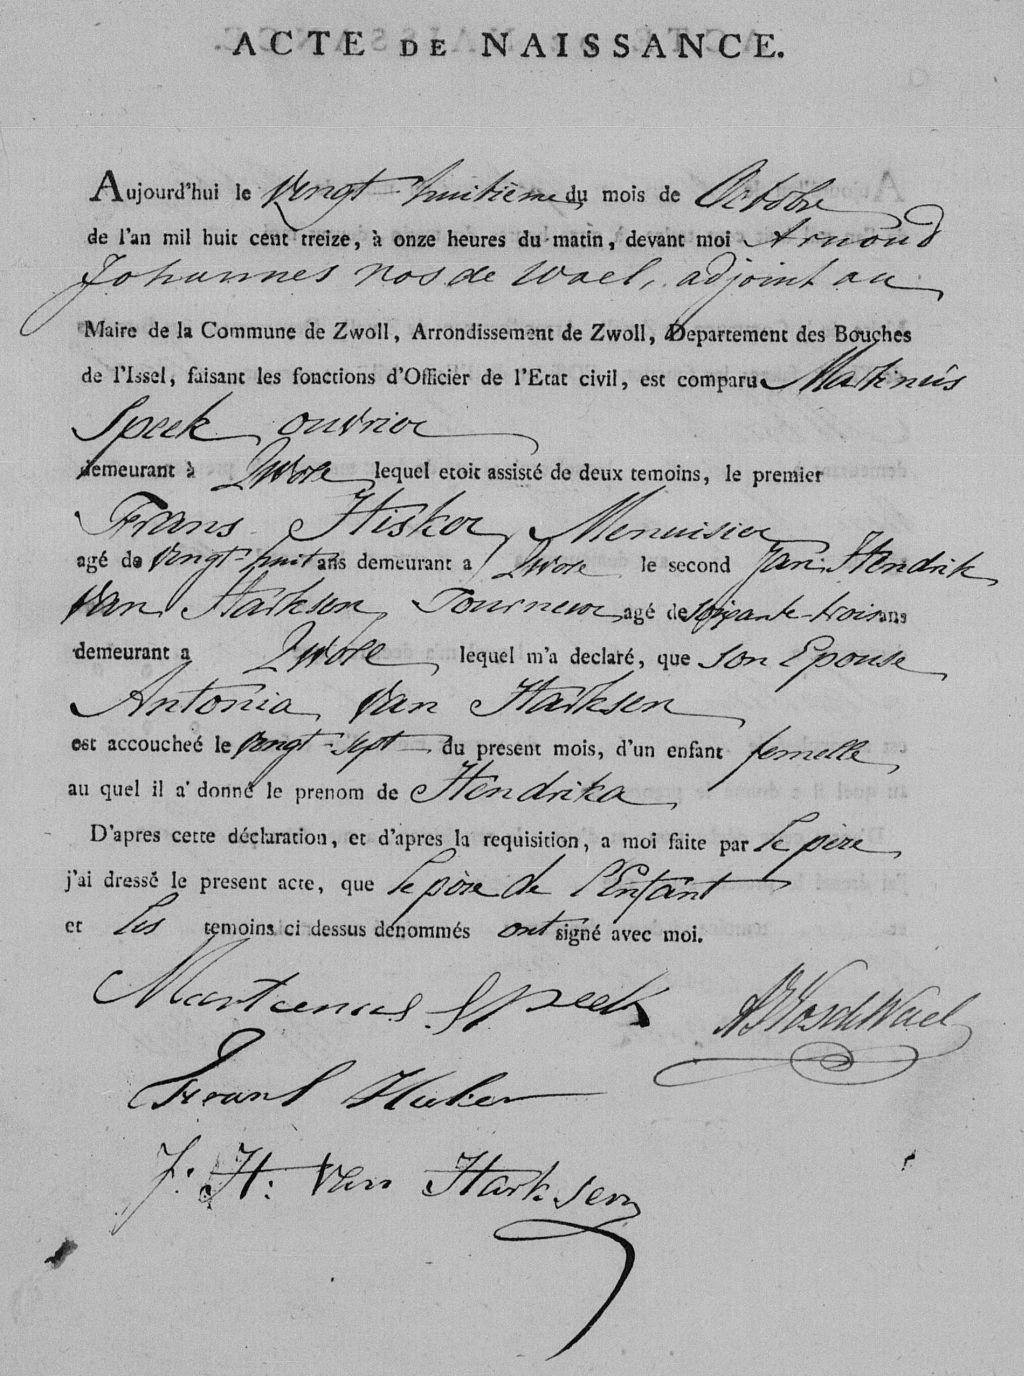 ACTE DE NAISSANCE.
Aujourd'hui le vingt-huitième du mois de Octobre
de l'an mil huit cent treize, à onze heures du matin, devant moi Arnoud
Johannes Vos de Wael, adjoint au
Maire de la Commune de Zwoll, Arrondissement de Zwoll, Departement des Bouches
de l'Issel, faisant les fonctions d'Officier de l'Etat civil, est comparu Martinus
Speek ouvrier
demeurant à Zwole lequel etoit assisté de deux temoins, le premier
Frans Menuisier
agé de vingt-huit ans demeurant a Zwole le second Jan Hendrik
van Harksen Tourneur agé de soixante-trois ans
demeurant a Zwole lequel m'a declaré, que son Epouse
Antonia van Harksen
est accoucheé le vingt-sept du present mois, d'un enfant femelle
au quel il a donné le prenom de Hendrika
D'apres cette déclaration, et d'apres la requisition, a moi faite par le père
j'ai dressé le present acte, que le père de l'Enfant
et les temoins ci dessus denommés ont signé avec moi.
Martinus Speek
AJ Vos de Wael
Frans
J: H: van Harksen